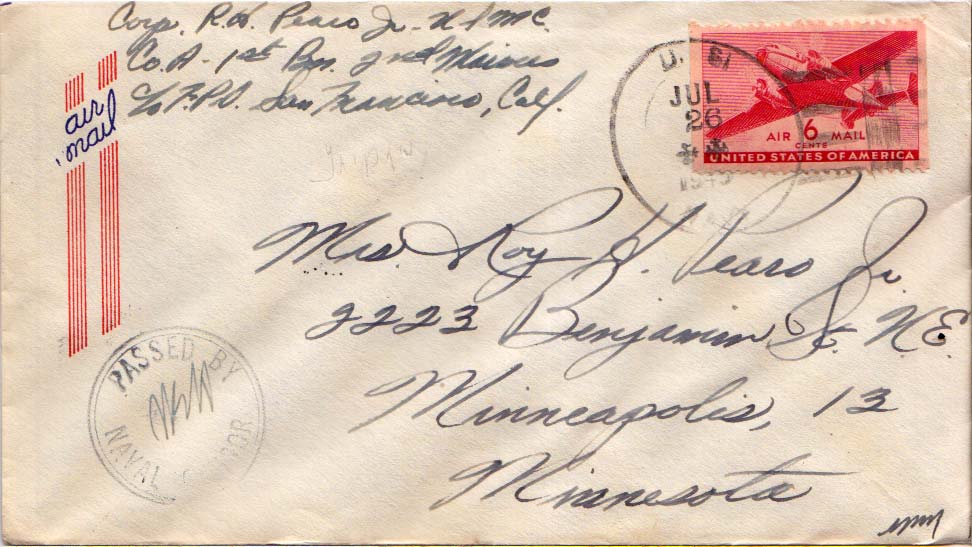 Corp. R.H. Pearo Jr. U.S.M.C.
Co. A - 1st Bn. 2nd Marines
℅ F.P.O. San Francisco, Calif.
air
mail
JUL
26
1943
AIR 6 MAIL
CENTS
UNITED STATES OF AMERICA
Mrs. Roy H. Pearo Jr.
2223 Benjamin St. N.E.
Minneapolis, 13
Minnesota
PASSED BY
NAVAL CENSOR